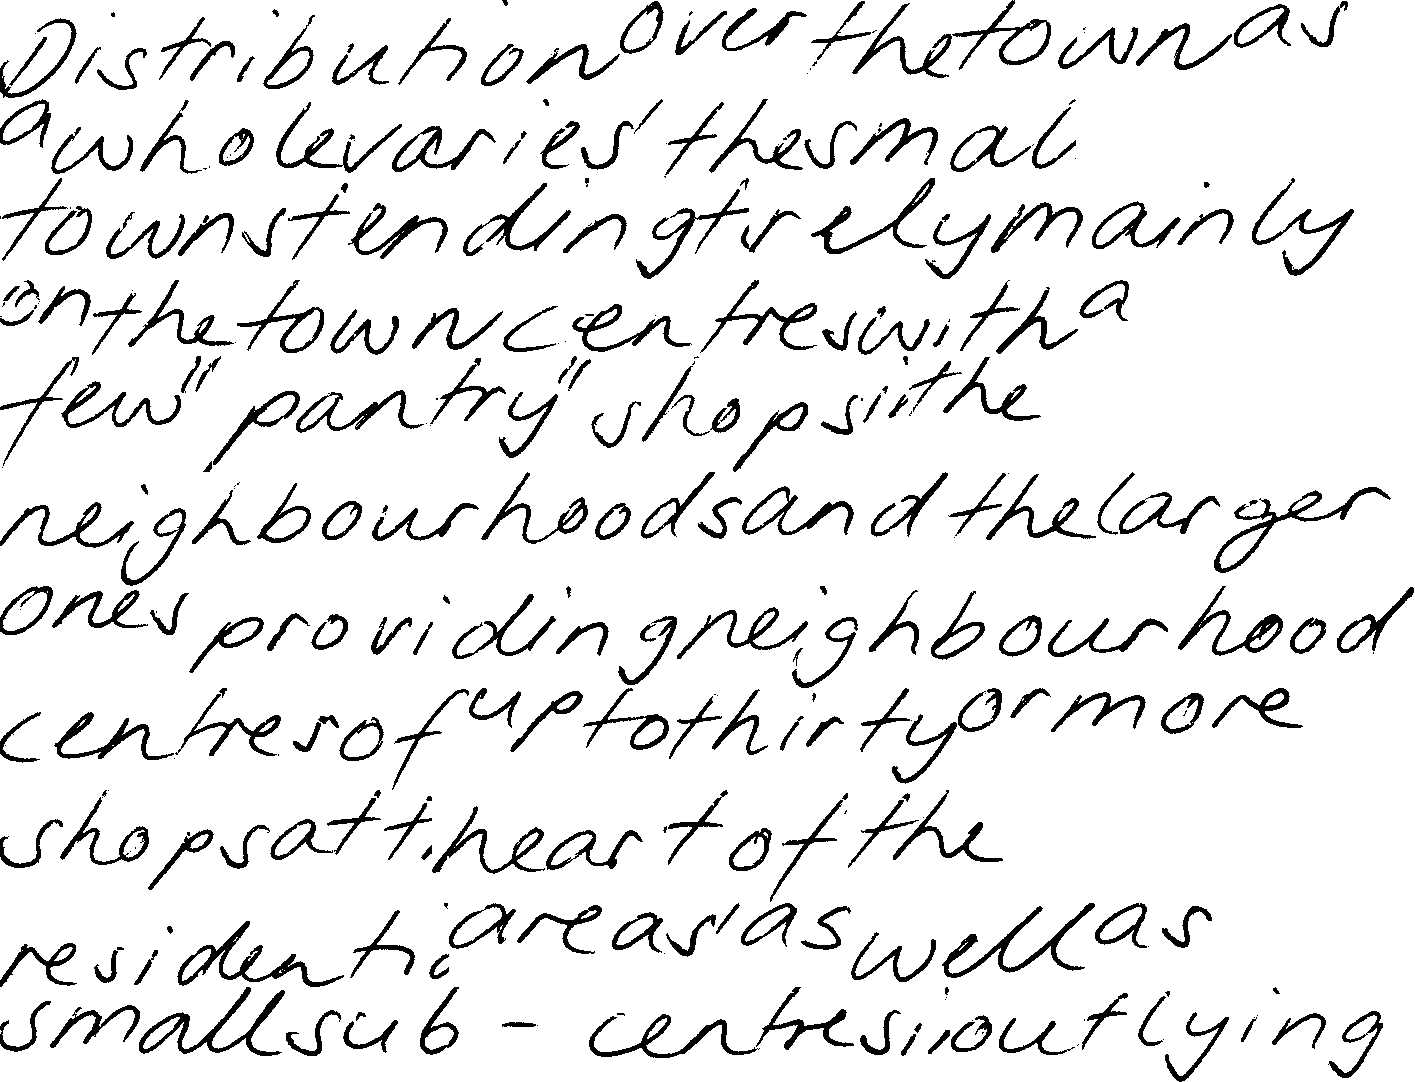 Distribution over the town as
a whole varies, the smal
towns tending t rely mainly
on the town centres with a
few "pantry" shops in the
neighbourhoods and the larger
ones providing neighbourhood
centres of up to thirty or more
shops at t heart of the
residenti areas, as well as
small sub - centres in outlying